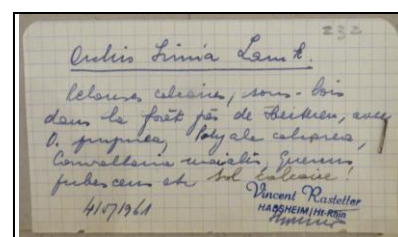 232
Orchis Simia Lamk.
Pelouses calcaires, sous-bois
dans la forêt près de Heiteren, avec
O. purpurea, Polygale calcarea,
Convallaria maialis, Quercus
pubescens etc Sol calcaire!
Vincent Rastetter
HABSHEIM/Ht-Rhin
4/5/1961